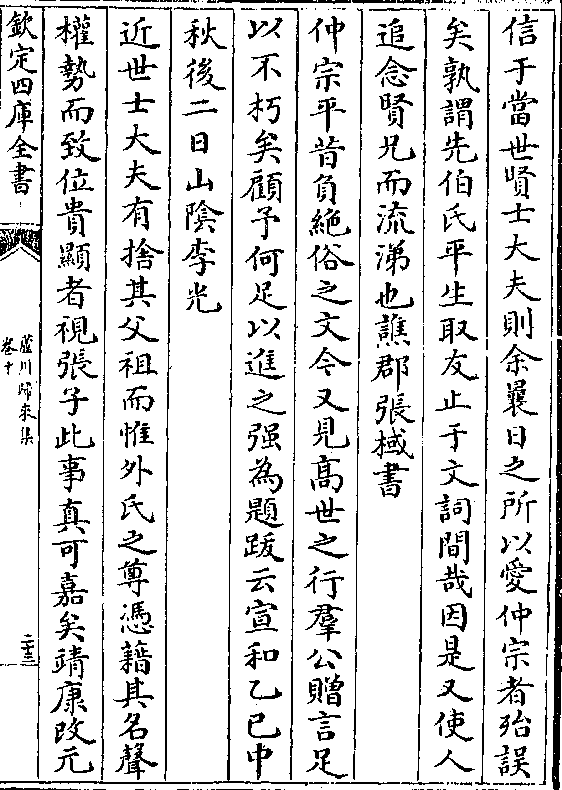 信于當世賢士大夫則余曩日之所以愛仲宗者殆誤
矣孰謂先伯氏平生取友止于文詞間哉因是又使人
追念賢兄而流涕也譙郡張棫書
仲宗平昔負絶俗之文今又見髙世之行羣公贈言足
以不朽矣顧予何足以進之强為題跋云宣和乙巳中
秋後二日山隂李光
近世士大夫有捨其父祖而惟外氏之尊憑藉其名聲
權勢而致位貴顯者視張子此事真可嘉矣靖康改元
欽定四庫全書
蘆川歸來集
卷十
二十三